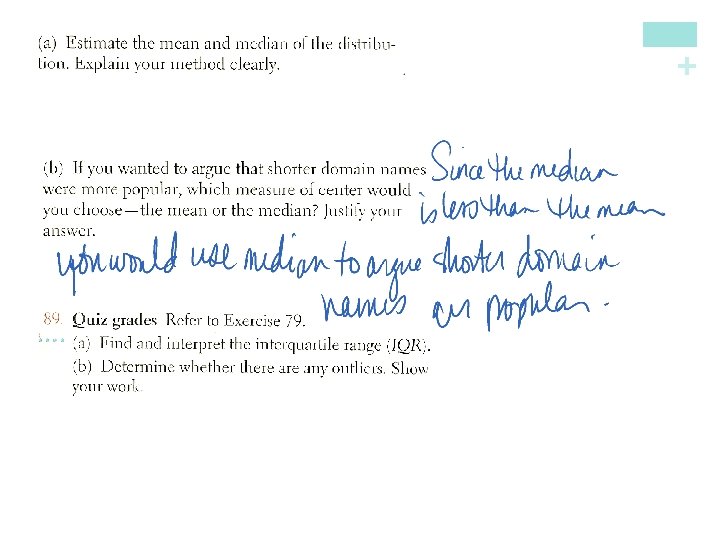 (a) Estimate the mean and median of the distribu-
tion. Explain your method clearly.
+
(b) If you wanted to argue that shorter domain names
were more popular, which measure of center would
you choose—the mean or the median? Justify your
answer.
Since the median
is less than the mean
you would use median to argue shorter domain
names are popular.
89. Quiz grades Refer to Exercise 79.
(a) Find and interpret the interquartile range (IQR).
(b) Determine whether there are any outliers. Show
your work.